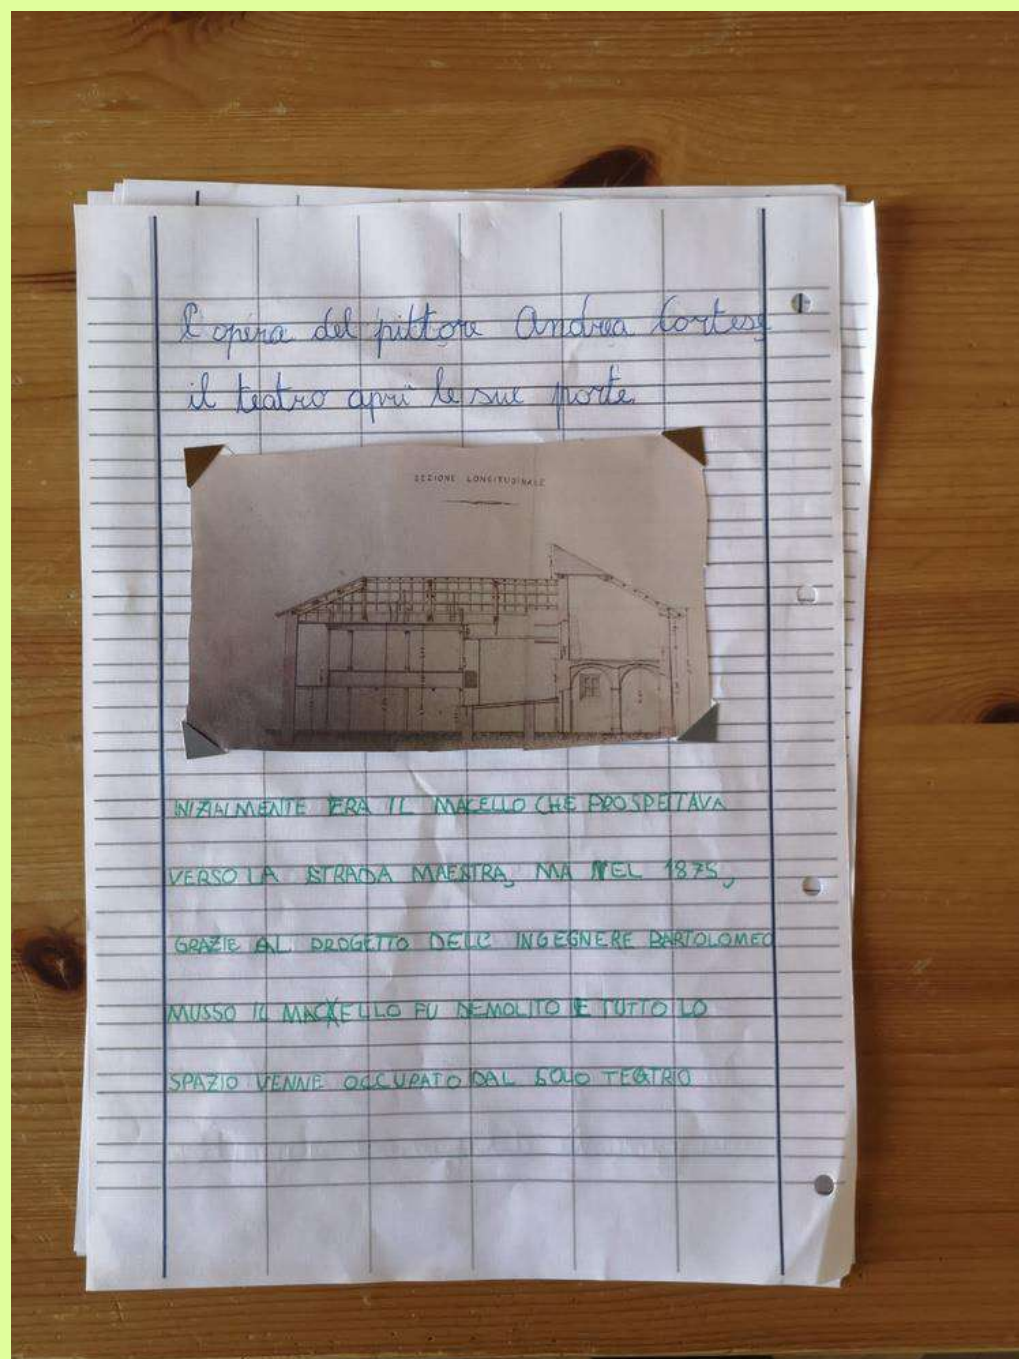 l'opera del pittore Andrea Cortese
il teatro aprì le sue porte.
SEZIONE LONGITUDINALE
INIZIALMENTE ERA IL MACELLO CHE PROSPETTAVA
VERSO LA STRADA MAESTRA, MA NEL 1875,
GRAZIE AL PROGETTO DELL' INGEGNERE BARTOLOMEO
MUSSO IL MACELLO FU DEMOLITO E TUTTO LO
SPAZIO VENNE OCCUPATO DAL SOLO TEATRO